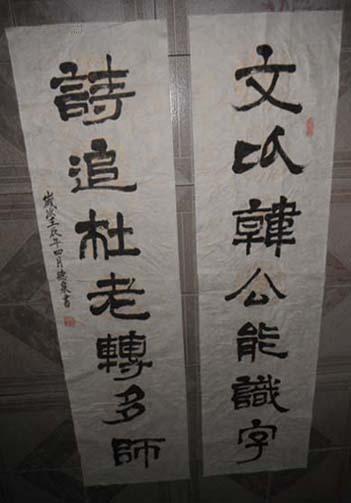 文以韓公能識字
詩追杜老轉多師
歲次壬辰年四月聽泉書